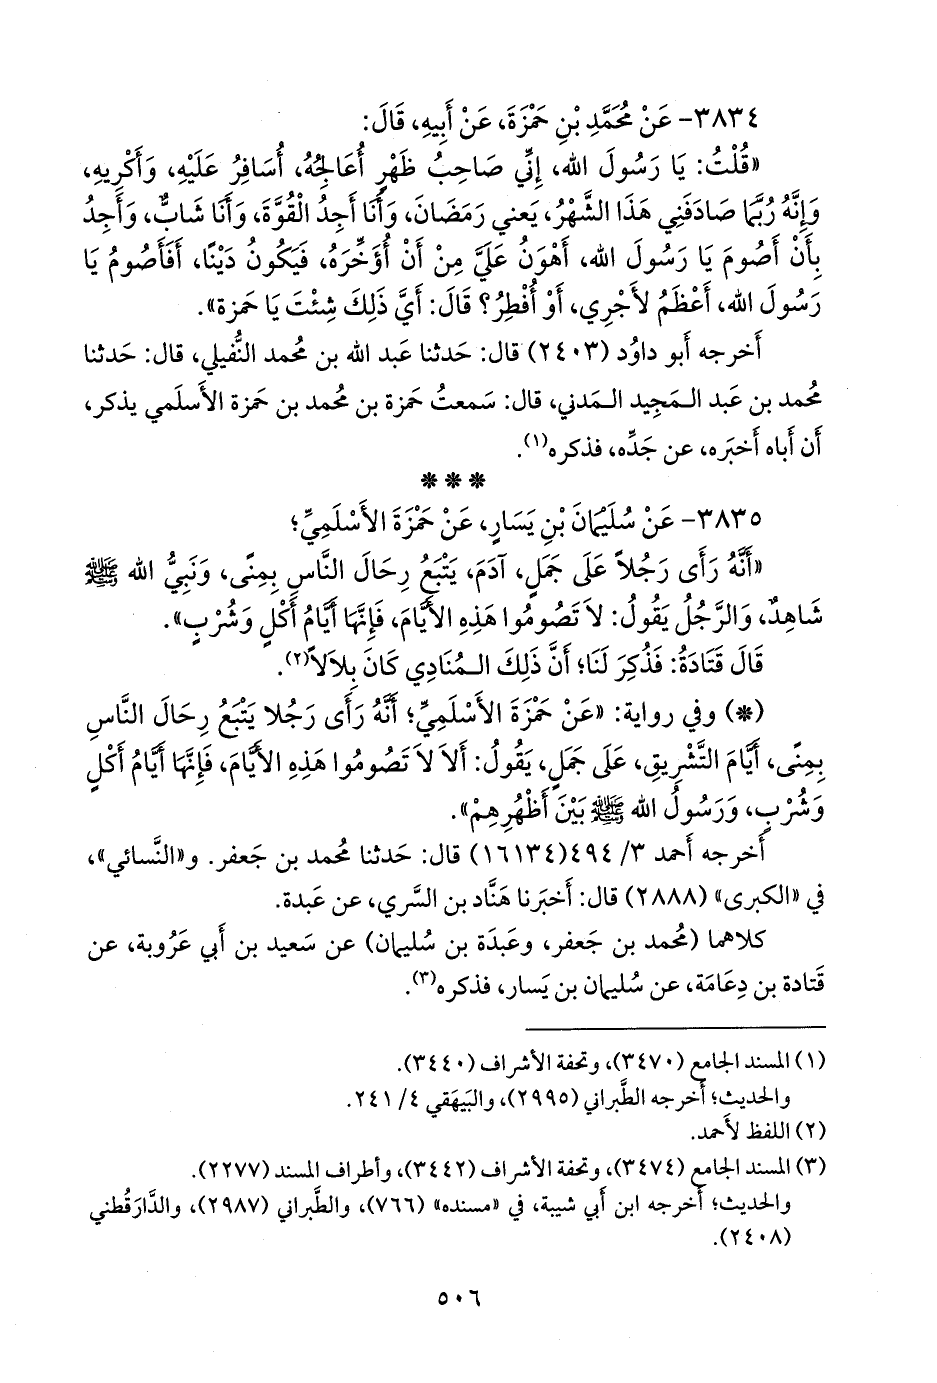 ٣٨٣٤- عَنْ مُحَمَّدِ بْنِ حَمْزَةَ، عَنْ أَبِيهِ، قَالَ:
«قُلْتُ: يَا رَسُولَ الله، إِنِّي صَاحِبُ ظَهْرٍ أُعَالِجُهُ، أُسَافِرُ عَلَيْهِ، وَأَكْرِيهِ،
وَإِنَّهُ رُبَّمَا صَادَفَنِي هَذَا الشَّهْرُ، يَعني رَمَضَانَ، وَأَنَا أَجِدُ الْقُوَّةَ، وَأَنَا شَابٌّ، وَأَجِدُ
بِأَنْ أَصُومَ يَا رَسُولَ الله، أَهْوَنُ عَلَيَّ مِنْ أَنْ أُؤَخِّرَهُ، فَيَكُونُ دَيْنًا، أَفَأَصُومُ يَا
رَسُولَ الله، أَعْظَمُ لأَجْرِي، أَوْ أُفْطِرُ؟ قَالَ: أَيَّ ذَلِكَ شِئْتَ يَا حَمزة».
أَخرجه أَبو داوُد (٢٤٠٣) قال: حَدثنا عَبد الله بن مُحمد النُّفيلي، قال: حَدثنا
مُحمد بن عَبد الـمَجيد الـمَدني، قال: سَمعتُ حَمزة بن مُحمد بن حَمزة الأَسلَمي يذكر،
أَن أَباه أَخبَره، عن جَدِّه، فذكره(١).
* * *
٣٨٣٥- عَنْ سُلَيْمَانَ بْنِ يَسَارٍ، عَنْ حَمْزَةَ الأَسْلَمِيِّ؛
«أَنَّهُ رَأَى رَجُلاً عَلَى جَمَلٍ، آدَمَ، يَتْبَعُ رِحَالَ النَّاسِ بِمِنًى، وَنَبِيُّ الله ﷺ
شَاهِدٌ، وَالرَّجُلُ يَقُولُ: لاَ تَصُومُوا هَذِهِ الأَيَّامَ، فَإِنَّهَا أَيَّامُ أَكْلٍ وَشُرْبٍ».
قَالَ قَتَادَةُ: فَذُكِرَ لَنَا؛ أَنَّ ذَلِكَ الـمُنَادِي كَانَ بِلاَلاً(٢).
(*) وفي رواية: «عَنْ حَمْزَةَ الأَسْلَمِيِّ؛ أَنَّهُ رَأَى رَجُلا يَتْبَعُ رِحَالَ النَّاسِ
بِمِنًى، أَيَّامَ التَّشْرِيقِ، عَلَى جَمَلٍ، يَقُولُ: أَلاَ لاَ تَصُومُوا هَذِهِ الأَيَّامَ، فَإِنَّهَا أَيَّامُ أَكْلٍ
وَشُرْبٍ، وَرَسُولُ الله ﷺ بَيْنَ أَظْهُرِهِمْ».
أَخرجه أَحمد ٣/ ٤٩٤(١٦١٣٤) قال: حَدثنا مُحمد بن جَعفر. و«النَّسائي»،
في «الكبرى» (٢٨٨٨) قال: أَخبَرنا هَنَّاد بن السَّري، عن عَبدة.
كلاهما (مُحمد بن جَعفر، وعَبدَة بن سُليمان) عن سَعيد بن أَبي عَرُوبة، عن
قَتادة بن دِعَامَة، عن سُليمان بن يَسار، فذكره(٣).
(١) المسند الجامع (٣٤٧٠)، وتحفة الأشراف (٣٤٤٠).
والحديث؛ أخرجه الطَّبراني (٢٩٩٥)، والبَيهَقي ٤/ ٢٤١.
(٢) اللفظ لأَحمد.
(٣) المسند الجامع (٣٤٧٤)، وتحفة الأشراف (٣٤٤٢)، وأطراف المسند (٢٢٧٧).
والحديث؛ أخرجه ابن أَبي شيبة، في «مسنده» (٧٦٦)، والطَّبراني (٢٩٨٧)، والدَّارَقُطني
(٢٤٠٨).
٥٠٦